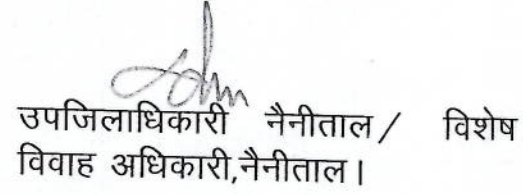 उपजिलाधिकारी नैनीताल/ विशेष
विवाह अधिकारी,नैनीताल।